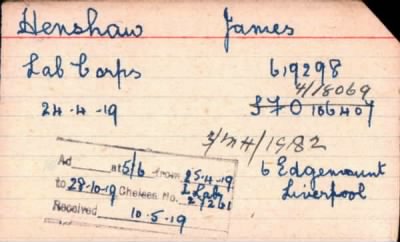 Henshaw James
Lab Corps 619298
4/18069
24-4-19 S F O 166407
3/M4/1982
Ad at 5/6 from 25-4-19
to 28-10-19 Chelsea No. 1 Lab
2/261
Received 10.5.19
Ad
6 Edgemount
Liverpool